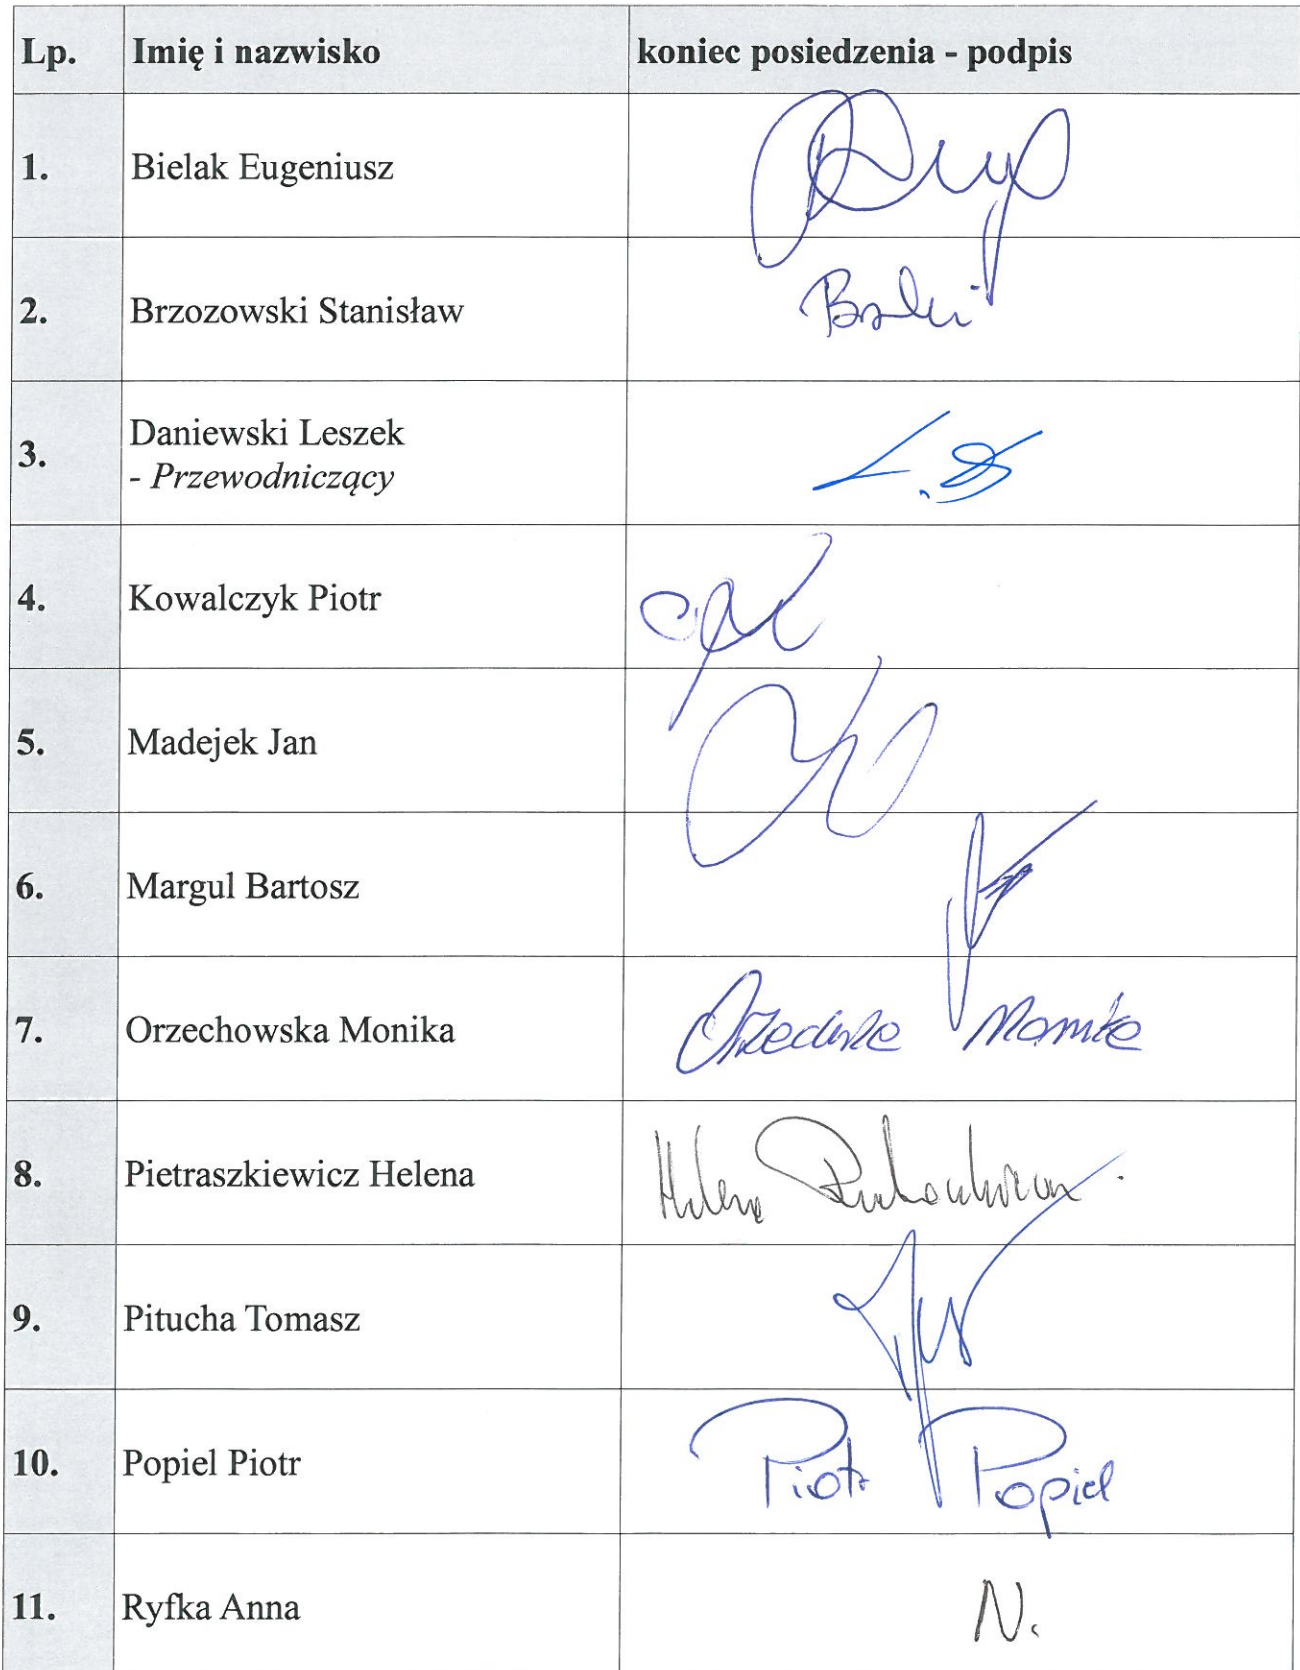 Lp. Imię i nazwisko koniec posiedzenia - podpis
1. Bielak Eugeniusz
2. Brzozowski Stanisław
3. Daniewski Leszek
- Przewodniczący
L.D
4. Kowalczyk Piotr
5. Madejek Jan
6. Margul Bartosz
7. Orzechowska Monika
8. Pietraszkiewicz Helena Helena
9. Pitucha Tomasz
10. Popiel Piotr Piotr Popiel
11. Ryfka Anna N.